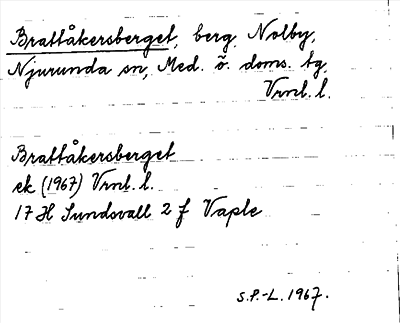 Brattåkersberget, berg, Nolby,
Njurunda sn, Med. ö. doms. tg.
Vrnl. l.
Brattåkersberget
ek (1967) Vrnl. l.
17 H Sundsvall 2 f Vaple
S.P.-L. 1967.